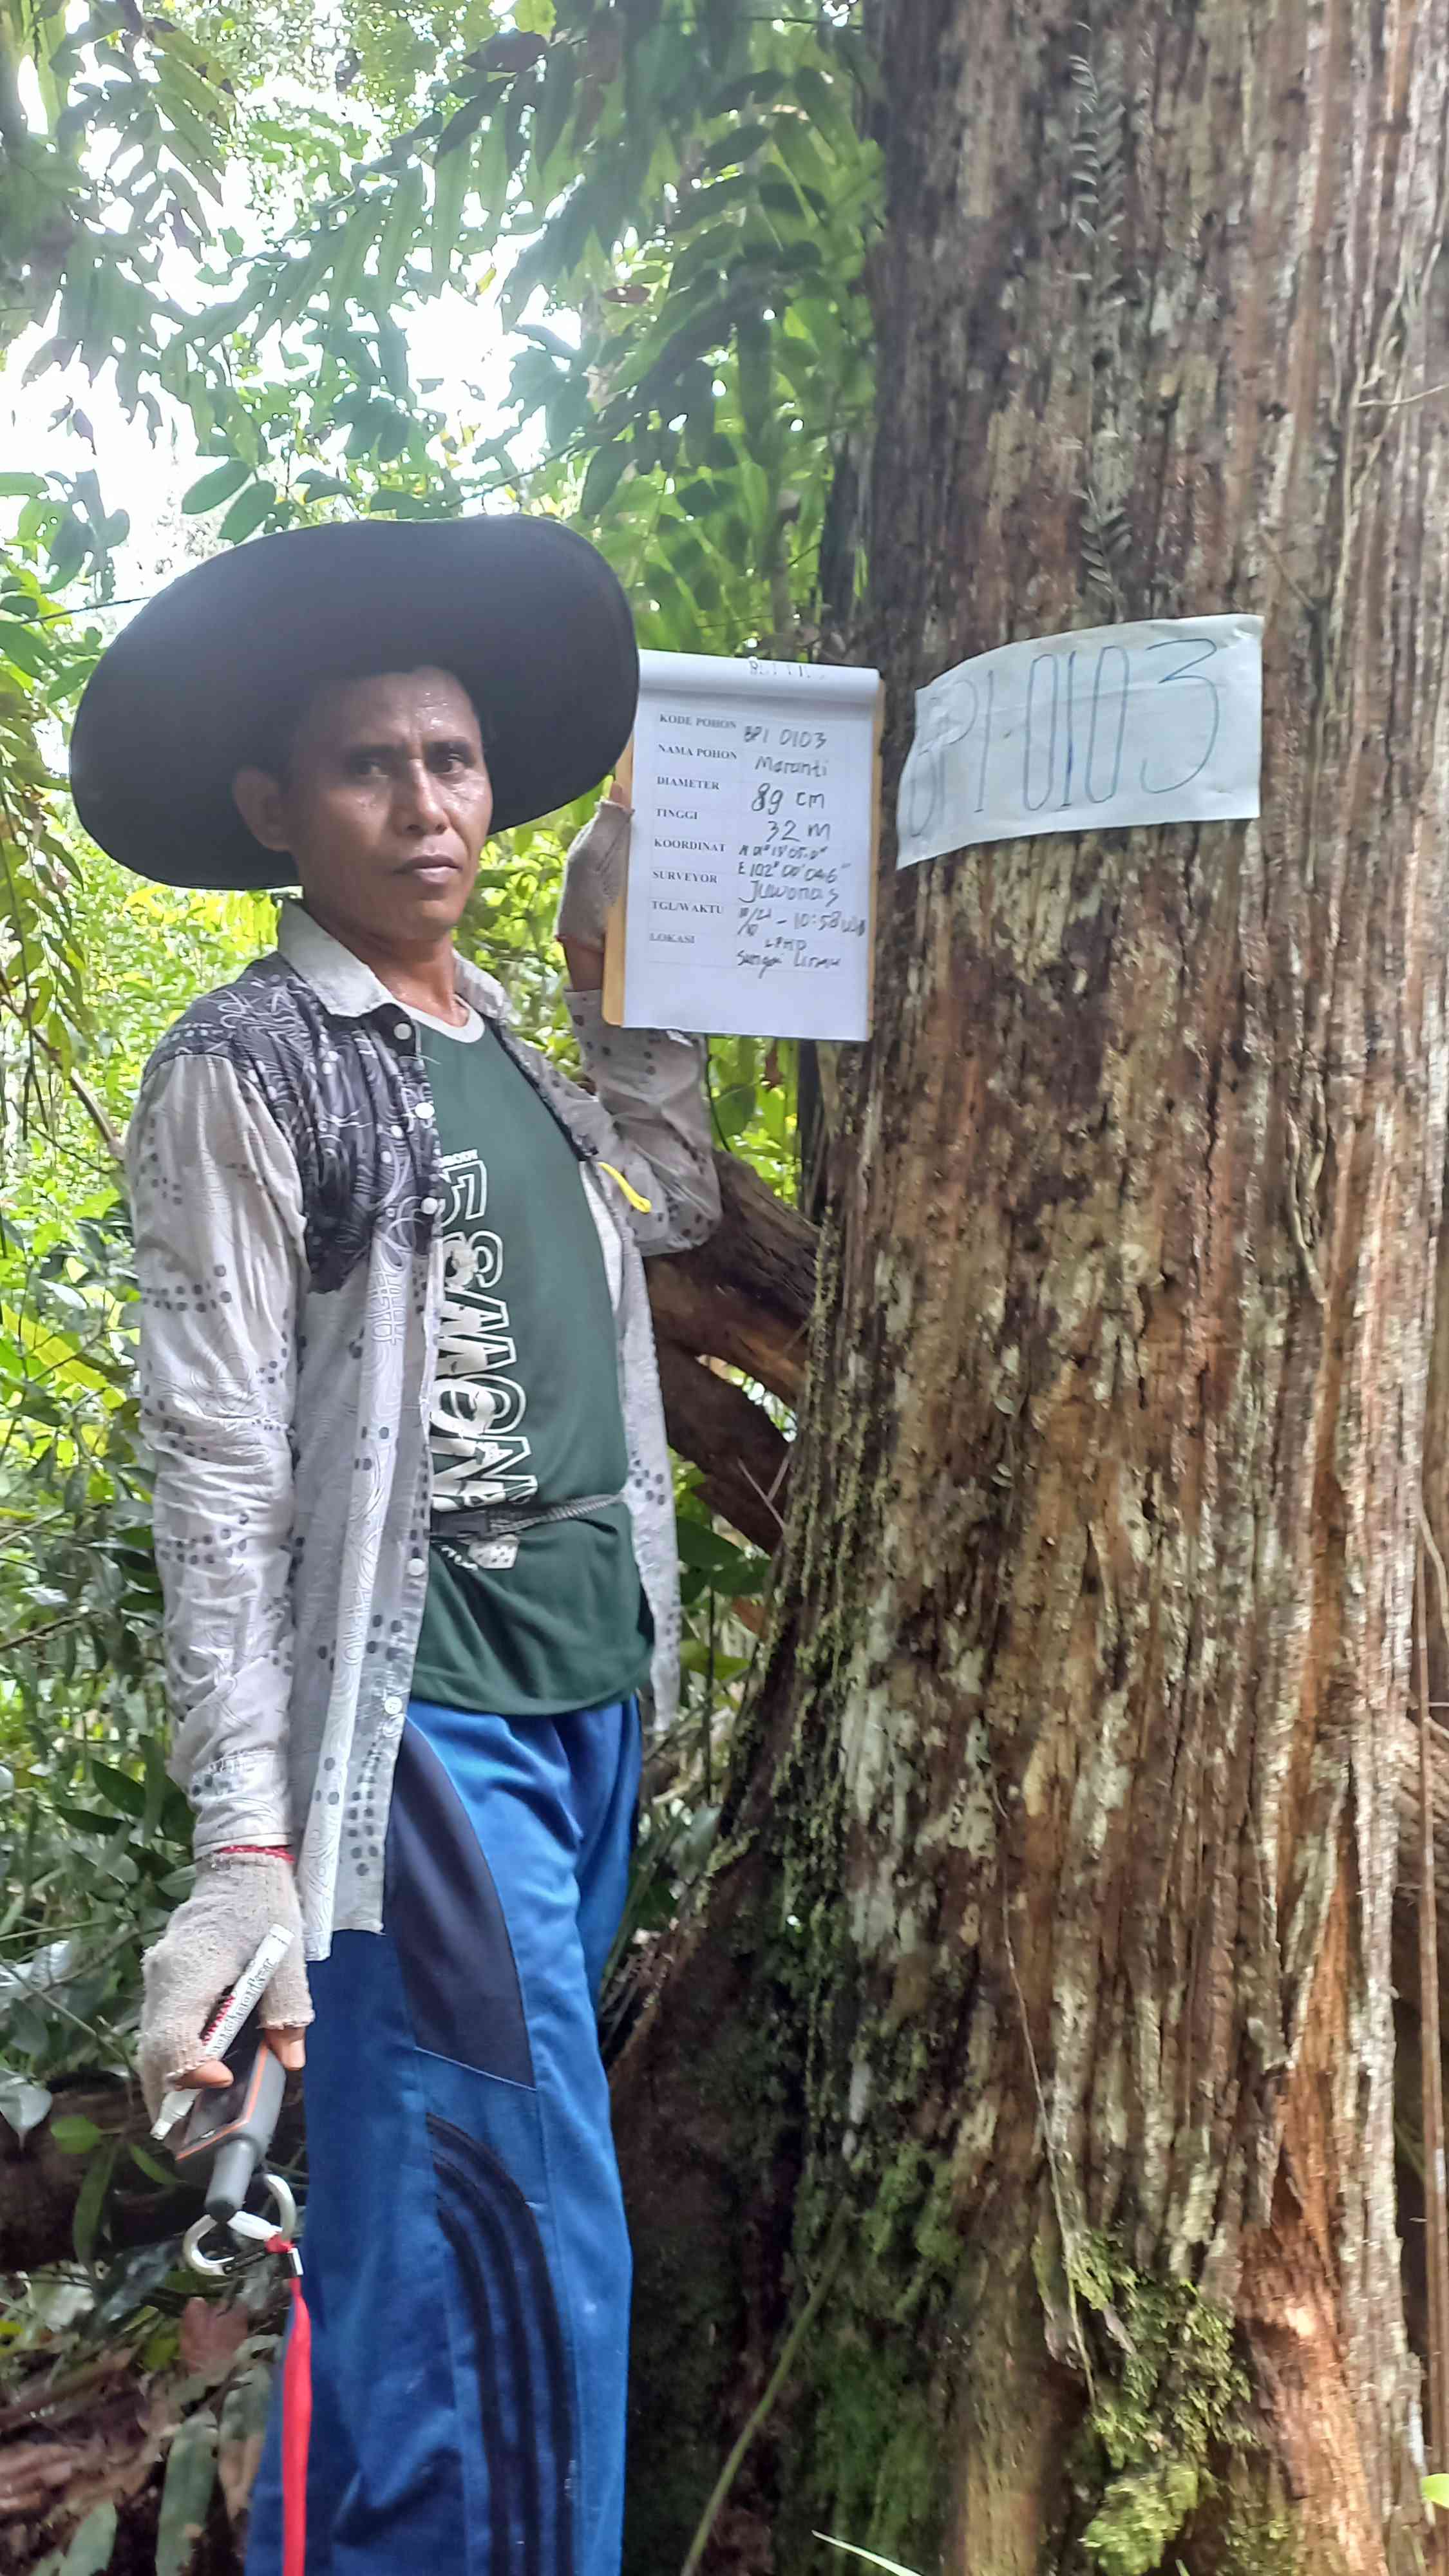 KODE POHON BPI 0103
NAMA POHON Maranti
DIAMETER 89 cm
TINGGI 32 m
KOORDINAT
E 102° 00' 04.6"
SURVEYOR Juwonas
TGL/WAKTU - 10:58 WIB
LOKASI LPHD
Sungai Linau
BPI-0103